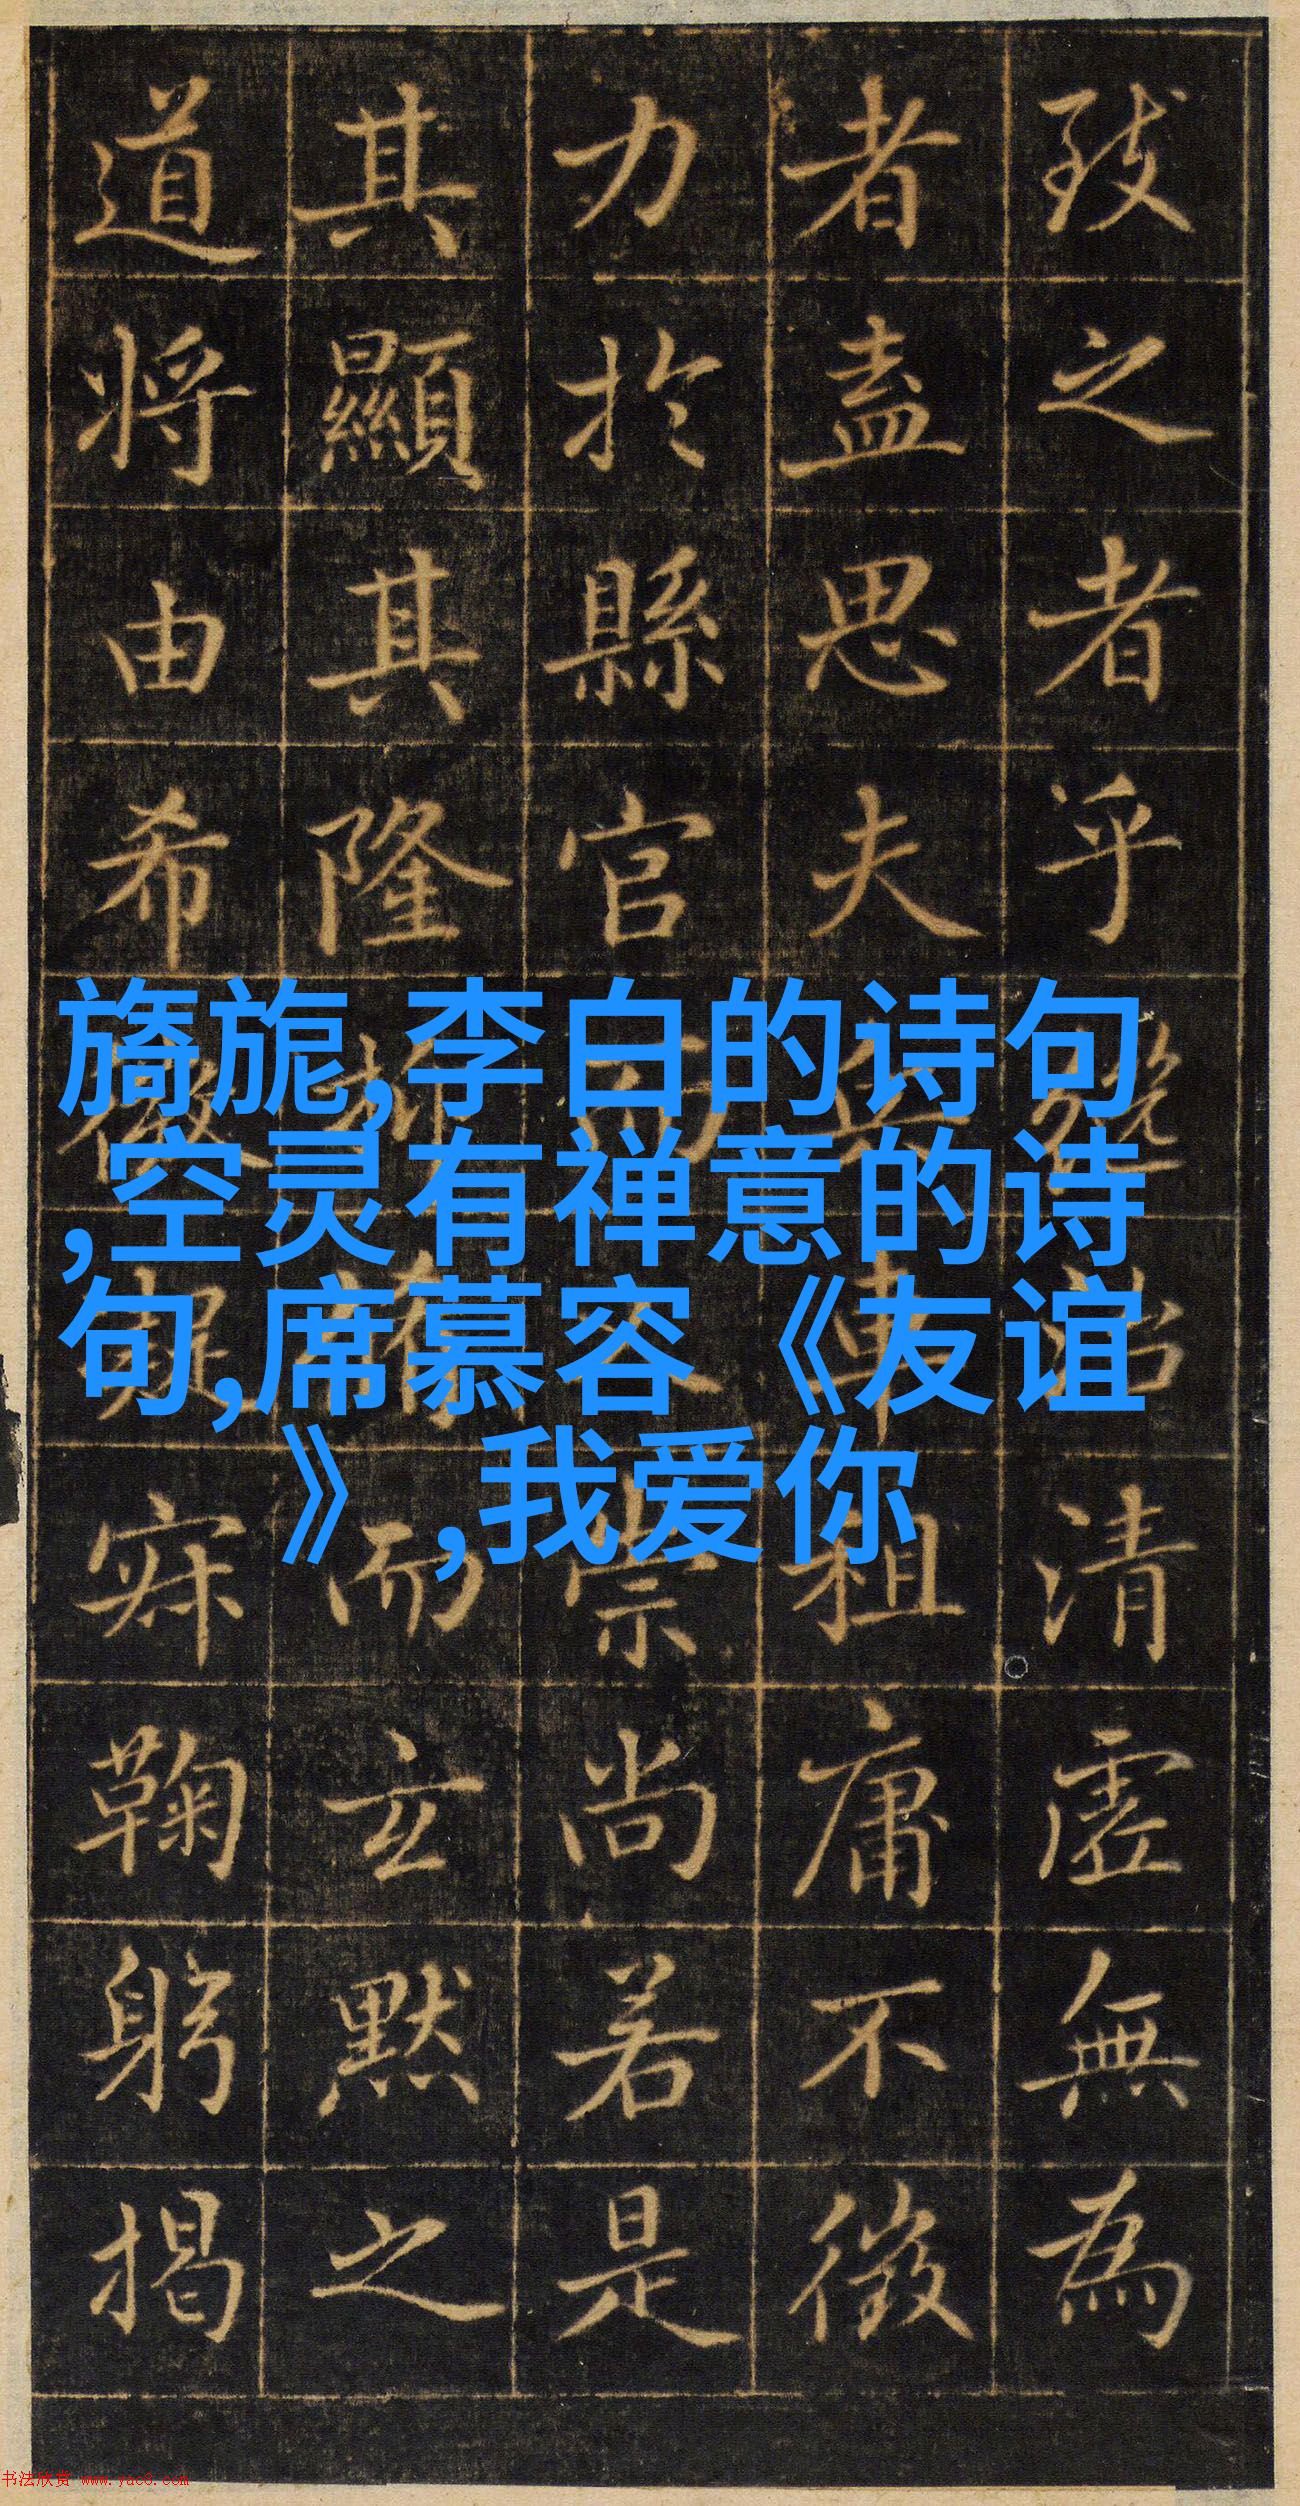 旖旎,李白的诗句
,空灵有禅意的诗
句,席慕容《友谊
》,我爱你
致之者乎清虛無為
者盡思夫車租庸不徵
力於縣官而人崇尚若是
其顯其隆而玄默之
道將由希微寂鞠躬揭
书法欣赏 www.yac8.com